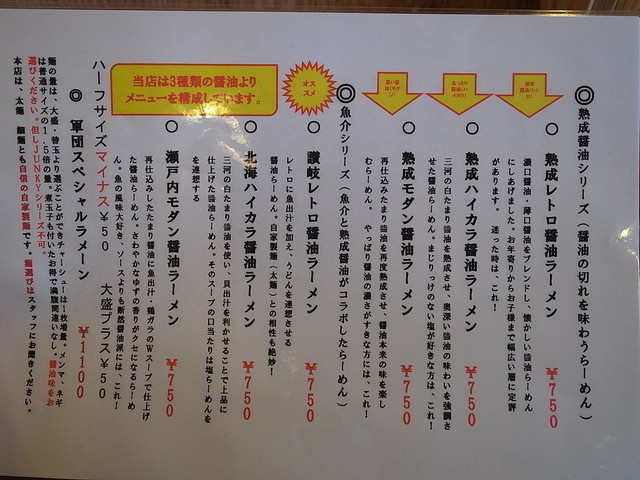 ◎熟成醤油シリーズ（醤油の切れを味わうらーめん）
○ 熟成レトロ醤油ラーメン ￥750
濃口醤油・薄口醤油をブレンドし、懐かしい醤油らーめん
にしあげました。お年寄りからお子様まで幅広い層に定評
があります。 迷った時は、これ！
○ 熟成ハイカラ醤油ラーメン ￥750
三河の白たまり醤油を熟成させ、奥深い醤油の味わいを強調さ
せた醤油らーめん。まじりっけのない塩が好きな方は、これ！
○ 熟成モダン醤油ラーメン ￥750
再仕込みしたたまり醤油を再度熟成させ、醤油本来の味を楽し
むらーめん。 やっぱり醤油の濃さがすきな方には、これ！
◎魚介シリーズ（魚介と熟成醤油がコラボしたらーめん）
オス
スメ
○ 讃岐レトロ醤油ラーメン ￥750
レトロに魚出汁を加え、うどんを連想させる
醤油らーめん。自家製麺（太麺）との相性も絶妙！
当店は3種類の醤油より
メニューを構成しています。
○ 北海ハイカラ醤油ラーメン ￥750
三河の白たまり醤油を使い、貝出汁を利かせることで上品に
仕上げた醤油らーめん。そのスープの口当たりは塩らーめんを
を連想する
○ 瀬戸内モダン醤油ラーメン ￥750
再仕込みしたたまり醤油に魚出汁・鶏ガラのWスープで仕上げ
た醤油らーめん。さわやかなゆずの香りがクセになるらーめ
ん。魚の風味大好き、ソースよりも断然醤油派には、これ！
ハーフサイズマイナス￥50 大盛プラス￥50
◎ 軍団スペシャルラーメン ￥1100
麺の量は、大盛・替玉より選ぶことができチャーシューは1枚増量。メンマ、ネギ
は普通サイズの1.5倍の量。煮玉子も付いたお得で満腹間違いなし。醤油味をお
選びください。但しJUNKYシリーズ不可。
本店は、太麺 細麺とも自信の自家製麺です。麺選びはスタッフにお聞きください。